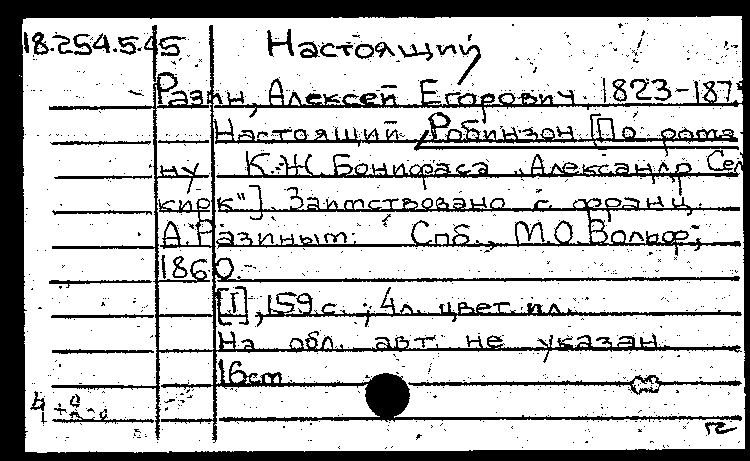 18.254.5.45 Настоящий
Разин, Алексей Егорович, 1823-187
Настоящий Робинзон [По рома
ну К.Ж. Бонифаса „Александр Сел
кирк"]. Заимствовано с франц.
А. Разиным. Спб., М.О. Вольф,
1860.
[I], 159 с.; 4 л. цвет. ил.
На обл. авт. не указан.
16 cm
4